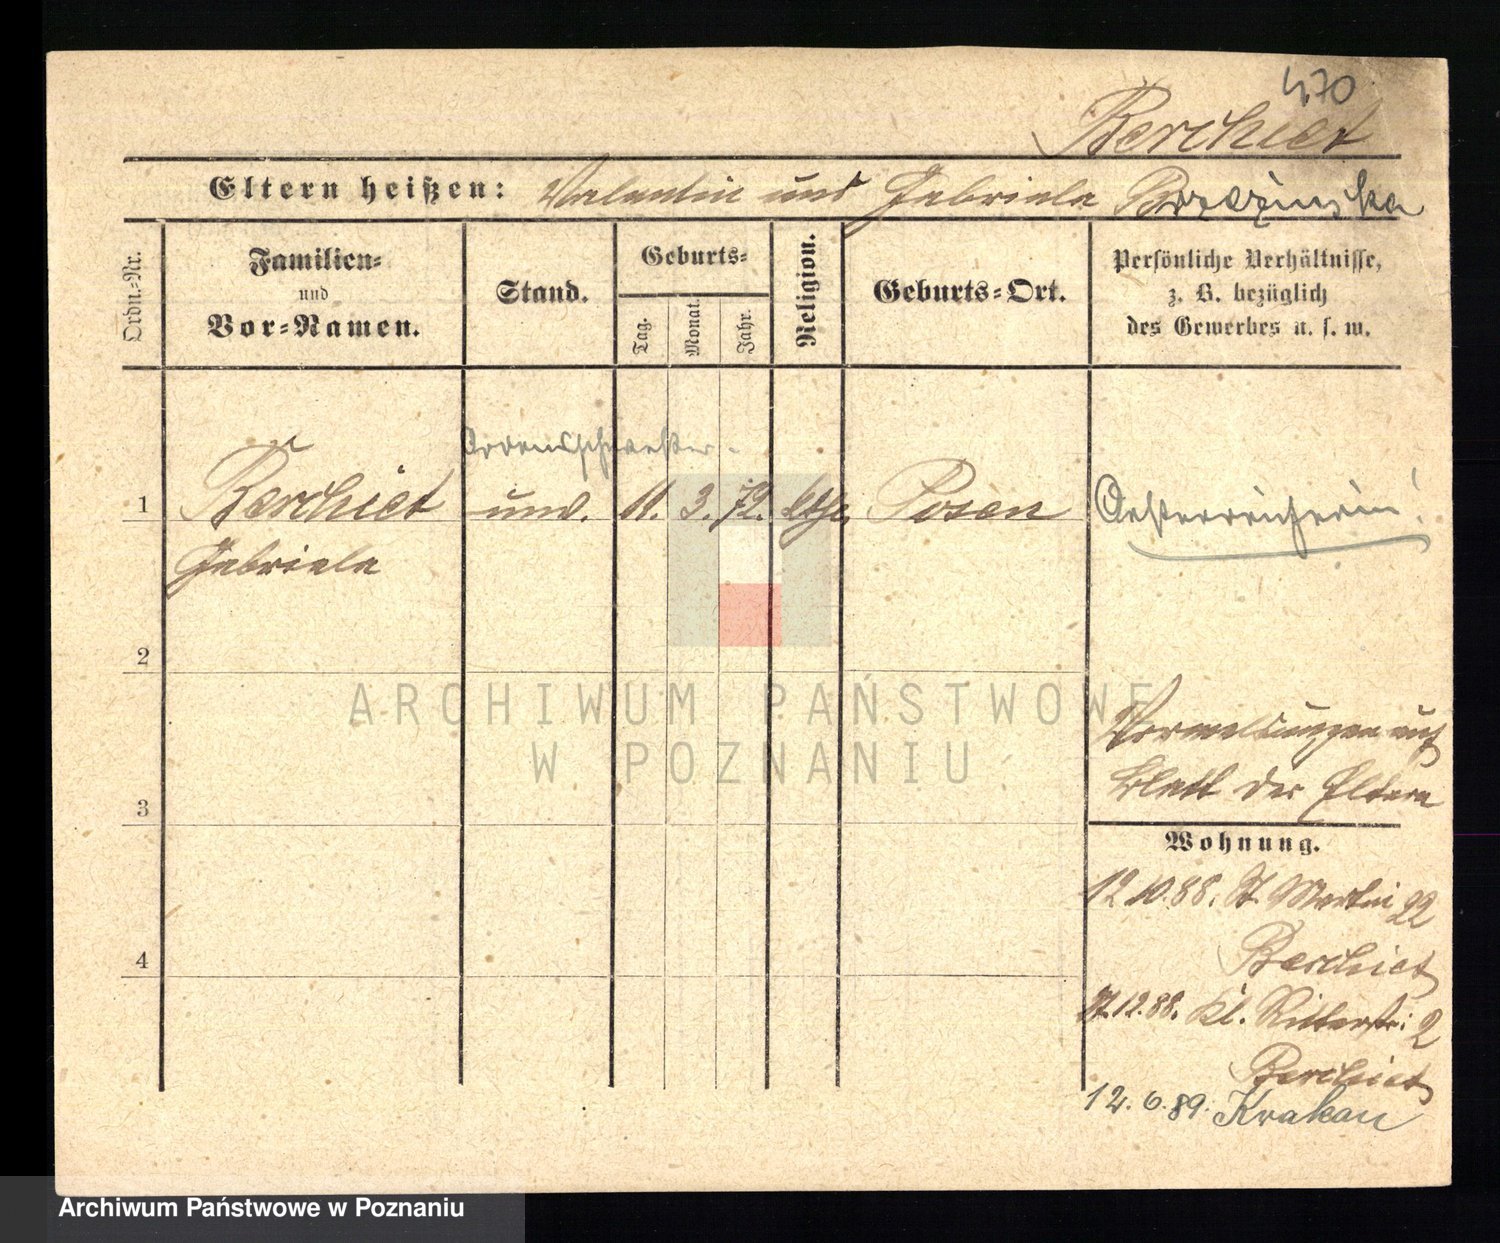 470
Berchiet
Eltern heißen: Valentin und Gabriele Brzezinska
Ordn.-Nr.
Familien-
und
Vor-Namen.
Stand.
Geburts-
Tag.
Monat.
Jahr.
Religion.
Geburts-Ort.
Persönliche Verhältnisse,
z. B. bezüglich
des Gewerbes u. s. w.
Ordensschwester
1 Berchiet unv. 11. 3. 72. kth. Posen Oesterreicherin!
Gabriele
2
Vormeldungen auf
Blatt der Eltern
3
Wohnung.
12.10.88. St. Martin 22
Berchiet
4
12.88. Kl. Ritterstr: 2
Berchiet
12. 6. 89. Krakau
ARCHIWUM PAŃSTWOWE
W POZNANIU
Archiwum Państwowe w Poznaniu